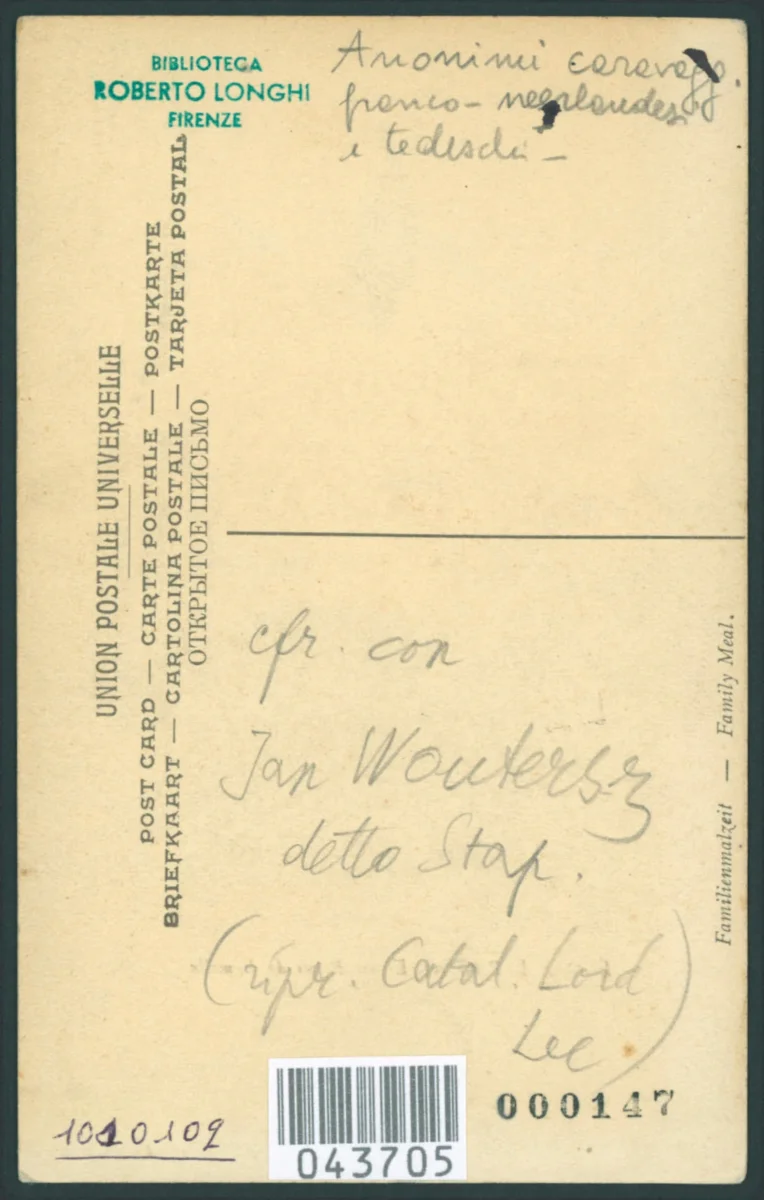 BIBLIOTECA
ROBERTO LONGHI
FIRENZE
Anonimi caravagg.
franco-neerlandesi
e tedeschi –
UNION POSTALE UNIVERSELLE
POST CARD — CARTE POSTALE — POSTKARTE
BRIEFKAART — CARTOLINA POSTALE — TARJETA POSTAL
ОТКРЫТОЕ ПИСЬМО
cfr. con
Jan Woutersz
detto Stap.
(ripr. Catal. Lord
Lee)
Familienmalzeit — Family Meal.
000147
1010109
043705